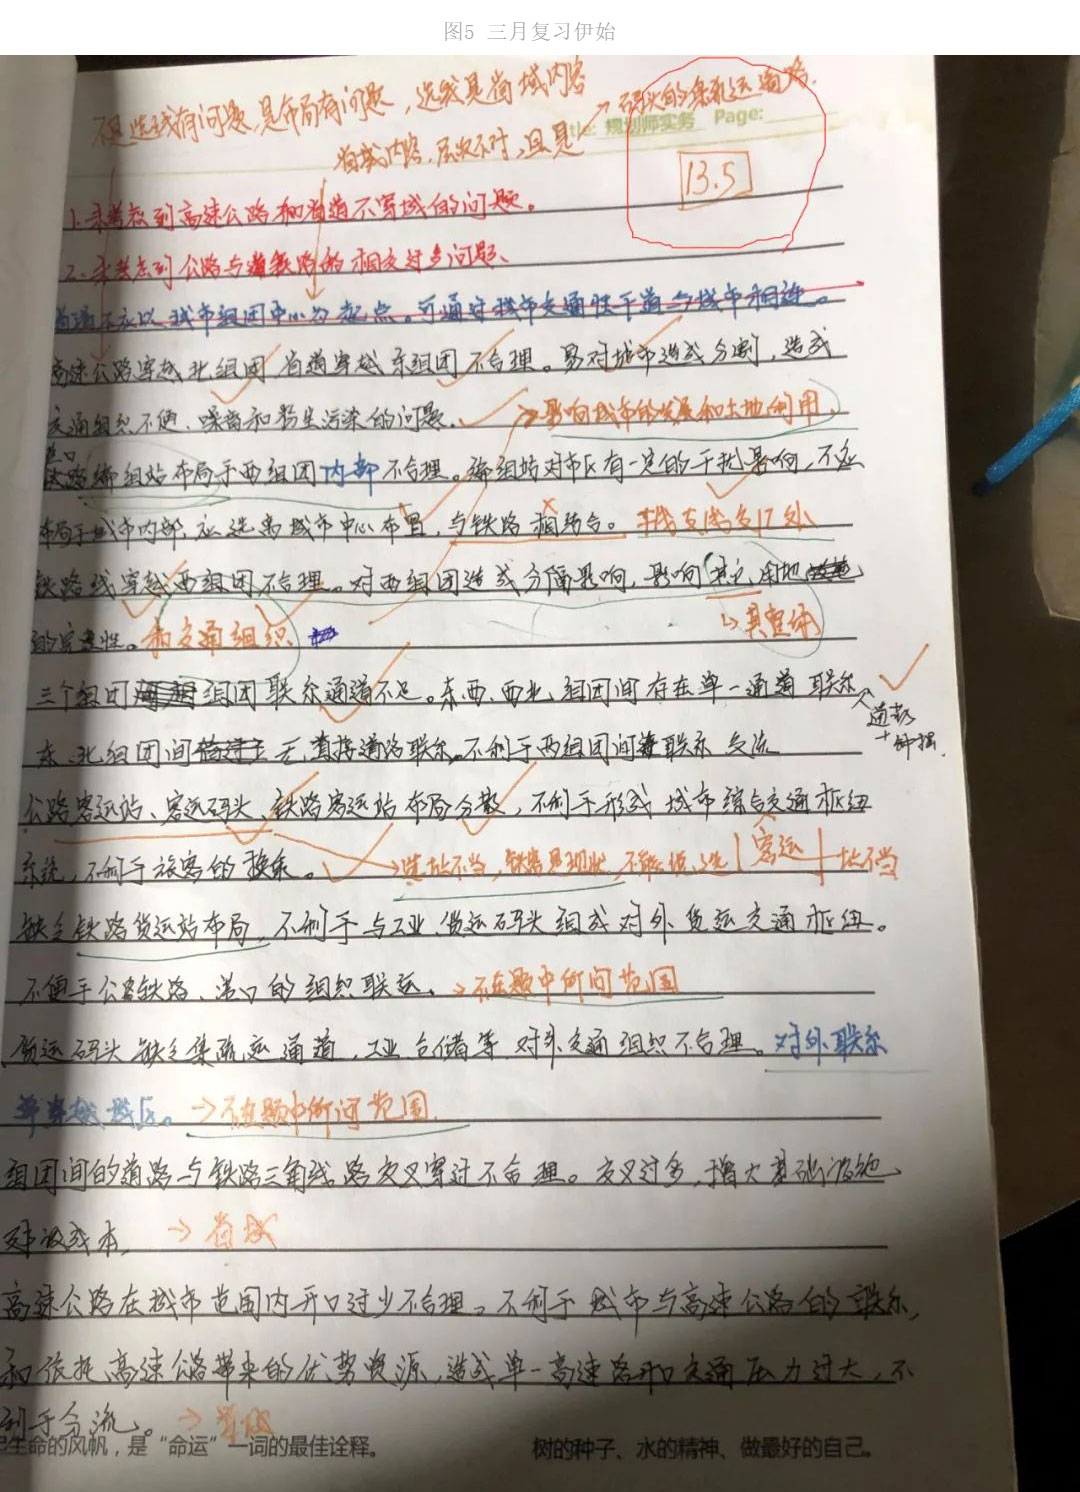 图5 三月复习伊始
有问题,是布局有问题,
→码头的集疏运道路.
内容,层次不对,且是
规划师实务 Page:
13.5
1.未考虑到高速公路和省道不穿城的问题。
2.未考虑到公路与铁路的相交过多问题、
城市组团中心为起点。可通过城市交通性干道与城市相连。
高速公路穿越北组团,省道穿越东组团不合理。易对城市造成分割,造成
交通组织不便、噪音和粉尘污染的问题。→影响城市的发展和土地利用,
编组站布局于西组团内部不合理。编组站对市区有一定的干扰影响,不应
布局于城市内部,应远离城市中心布置,与铁路相结合。
铁路线穿越西组团不合理。对西组团造成分隔影响,影响其它用地
的完整性。和交通组织 ↳其整体
三个组团 组团联系通道不足。东、西、西北、组团间存在单一通道联系
东、北组团间 无直接道路联系。不利于两组团间联系交流
公路客运站、客运码头、铁路客运站布局分散,不利于形成城市综合交通枢纽
系统,不利于旅客的换乘。→选址不当,铁客是现状,不能 客运 址不当
缺乏铁路货运站布局,不利于与工业、货运码头组成对外货运交通枢纽。
不便于公路铁路、港口的组织联运、→不在题中所问范围
货运码头缺乏集疏运通道,工业仓储等对外交通组织不合理。对外联系
穿越城区。→不在题中所问范围.
组团间的道路与铁路三角线路交叉穿过不合理。交叉过多,增大基础设施
建设成本, →省域
高速公路在城市范围内开口过少不合理。不利于城市与高速公路的联系,
和依托高速公路带来的优势资源,造成单一高速路开口交通压力过大,不
利于分流。
生命的风帆,是“命运”一词的最佳诠释。 树的种子、水的精神、做最好的自己。